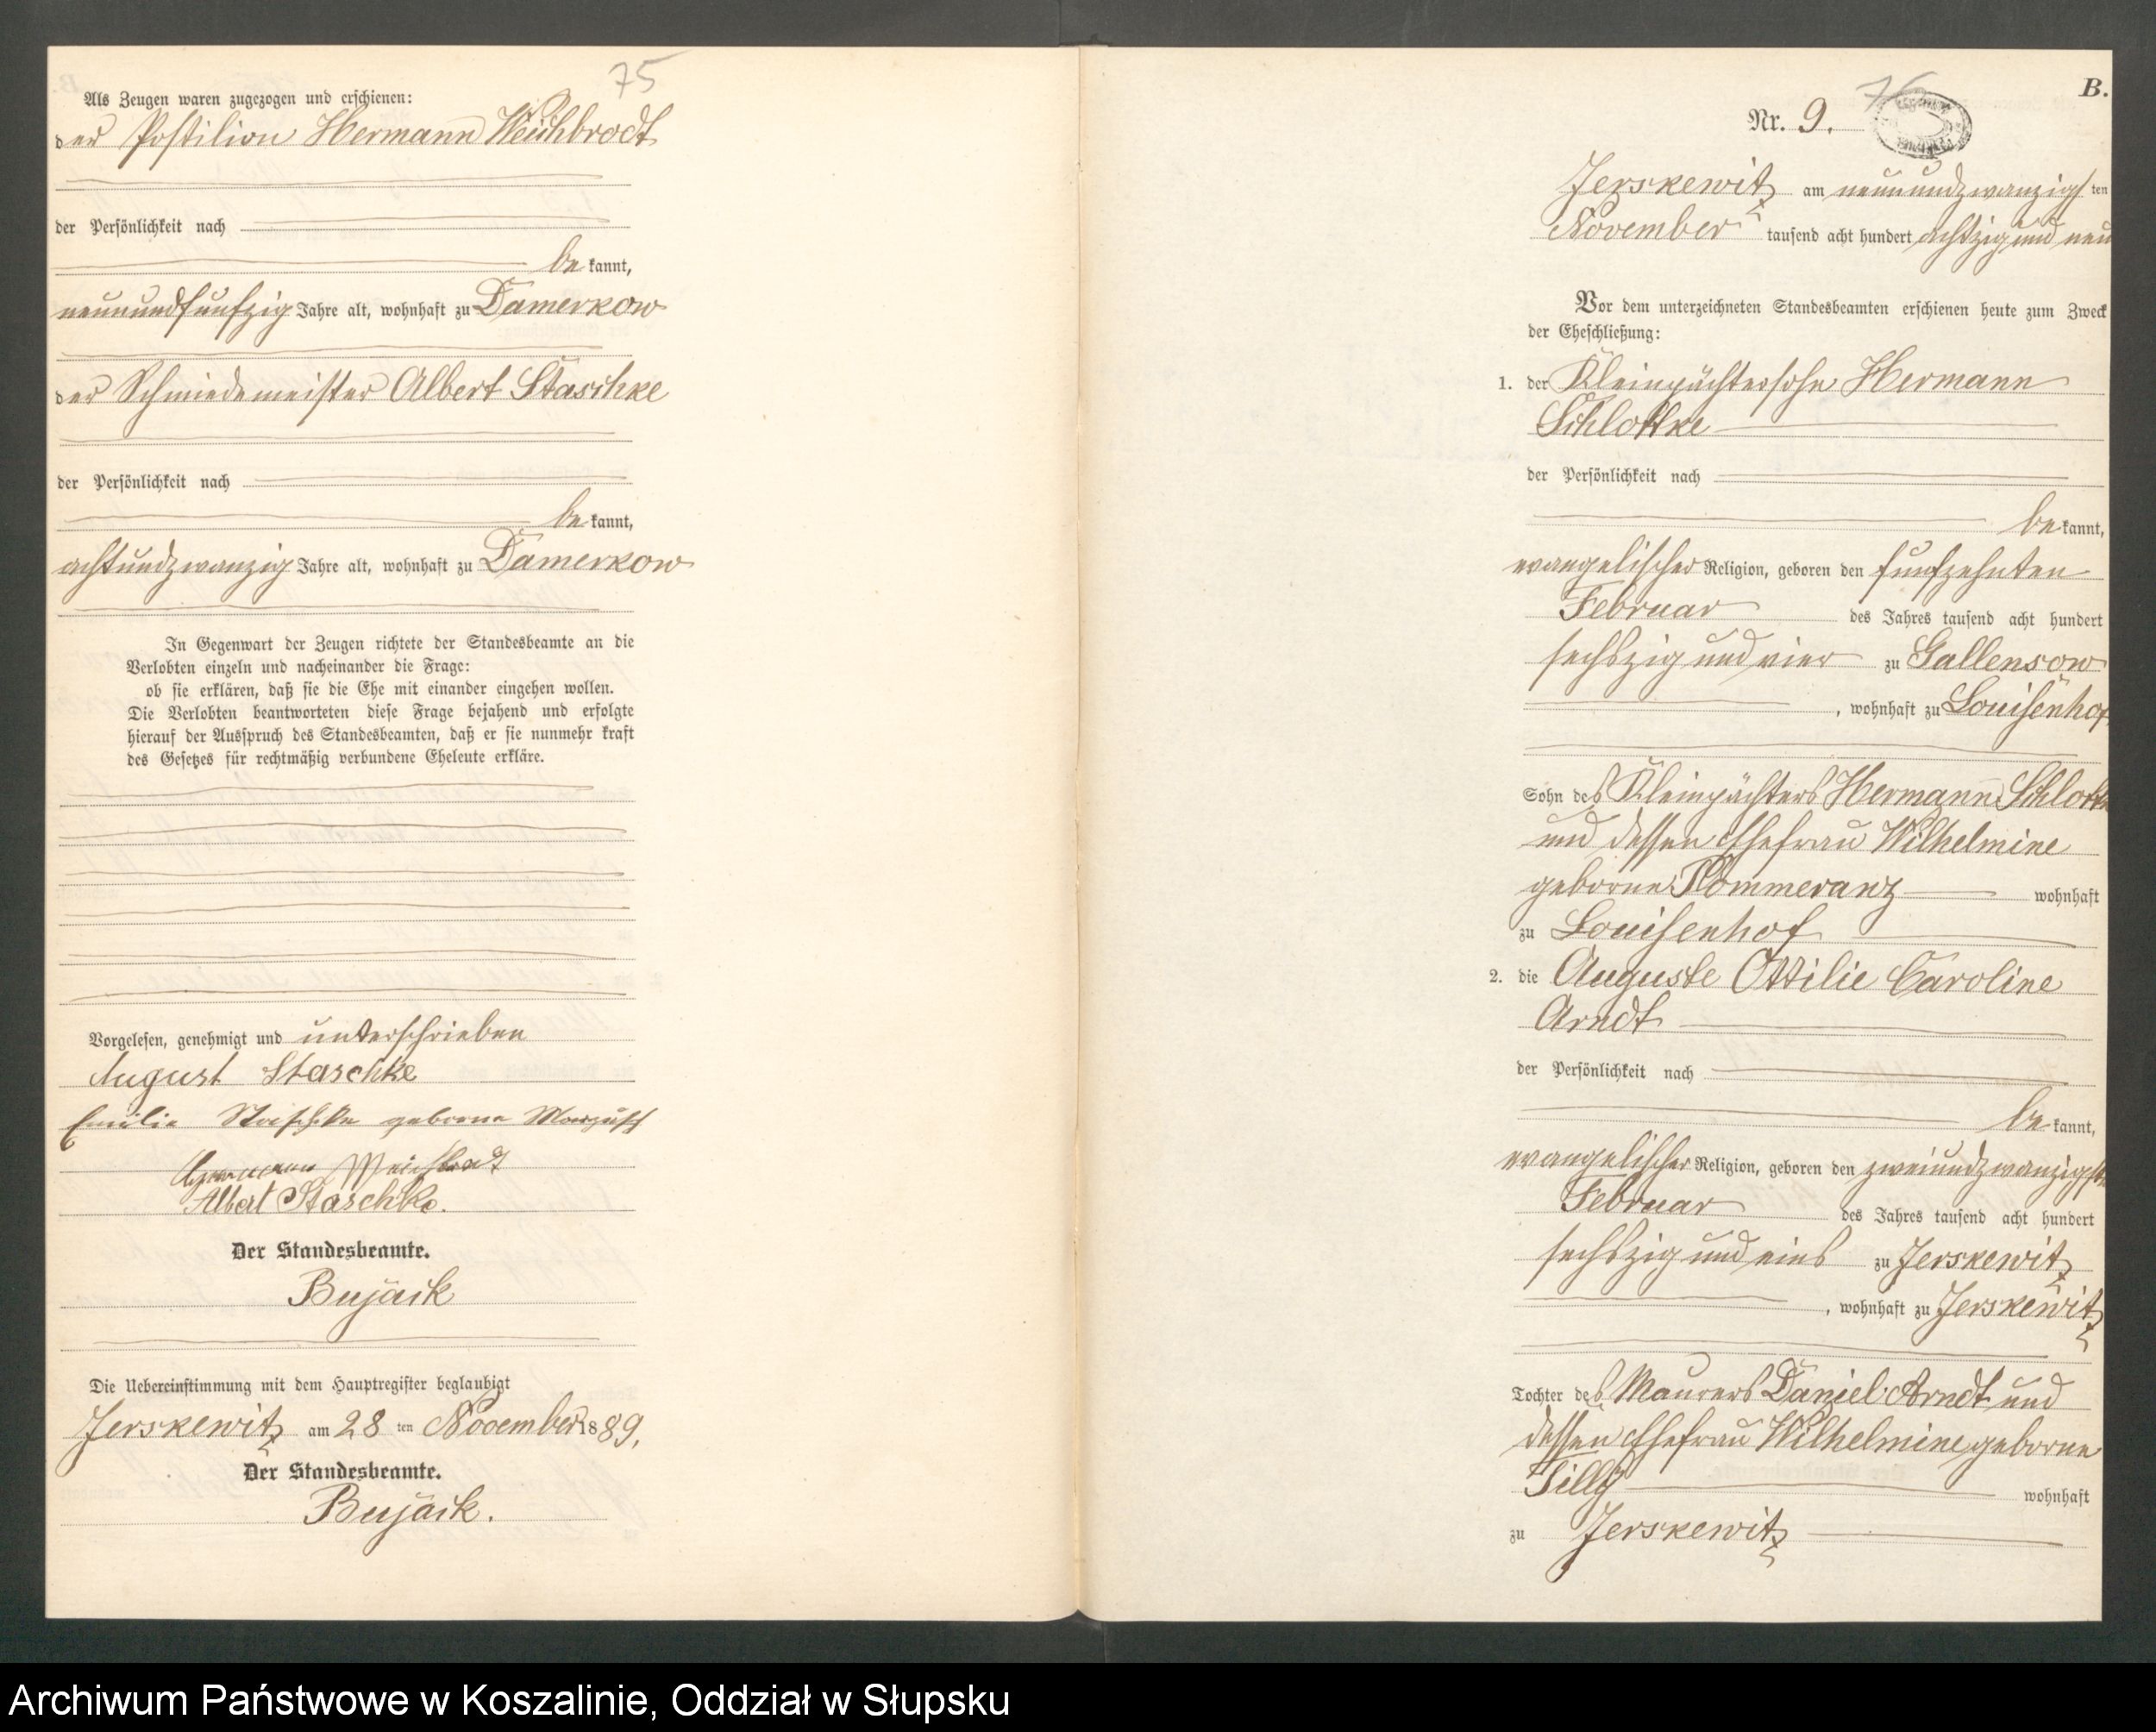 75
Als Zeugen waren zugezogen und erschienen:
der Postilion Hermann Weichbrodt
der Persönlichkeit nach
be kannt,
neunundfünfzig Jahre alt, wohnhaft zu Damerkow
der Schmiedemeister Albert Staschke
der Persönlichkeit nach
be kannt,
achtundzwanzig Jahre alt, wohnhaft zu Damerkow
In Gegenwart der Zeugen richtete der Standesbeamte an die
Verlobten einzeln und nacheinander die Frage:
ob sie erklären, daß sie die Ehe mit einander eingehen wollen.
Die Verlobten beantworteten diese Frage bejahend und erfolgte
hierauf der Ausspruch des Standesbeamten, daß er sie nunmehr kraft
des Gesetzes für rechtmäßig verbundene Eheleute erkläre.
Vorgelesen, genehmigt und unterschrieben
August Staschke
Emilie Staschke geborne
Hermann Weichbrodt
Albert Staschke.
Der Standesbeamte.
Bujack
Die Uebereinstimmung mit dem Hauptregister beglaubigt
Jerskewitz am 28 ten November 1889.
Der Standesbeamte.
Bujack.
B.
76
Nr. 9.
Jerskewitz am neunundzwanzigsten
November tausend acht hundert achtzig und neu
Vor dem unterzeichneten Standesbeamten erschienen heute zum Zweck
der Eheschließung:
1. der Kleinpächtersohn Hermann
Schlottke
der Persönlichkeit nach
be kannt,
evangelischer Religion, geboren den fünfzehnten
Februar des Jahres tausend acht hundert
sechszig und vier zu Gallensow
, wohnhaft zu Louisenhof
Sohn des Kleinpächters Hermann Schlottke
und dessen Ehefrau Wilhelmine
geborne Pommeranz wohnhaft
zu Louisenhof
2. die Auguste Ottilie Caroline
Arndt
der Persönlichkeit nach
be kannt,
evangelischer Religion, geboren den zweiundzwanzigsten
Februar des Jahres tausend acht hundert
sechszig und eins zu Jerskewitz
, wohnhaft zu Jerskewitz
Tochter des Maurers Daniel Arndt und
dessen Ehefrau Wilhelmine geborne
Silly wohnhaft
zu Jerskewitz
Archiwum Państwowe w Koszalinie, Oddział w Słupsku